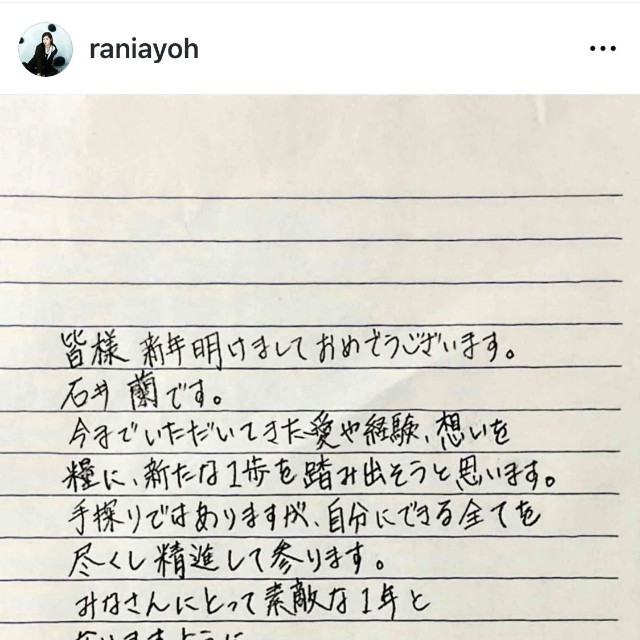 raniayoh
皆様 新年明けましておめでうございます。
石井 蘭です。
今までいただいてきた愛や経験、想いを
糧に、新たな1歩を踏み出そうと思います。
手探りではありますが、自分にできる全てを
尽くし精進して参ります。
みなさんにとって素敵な1年と
なりますように